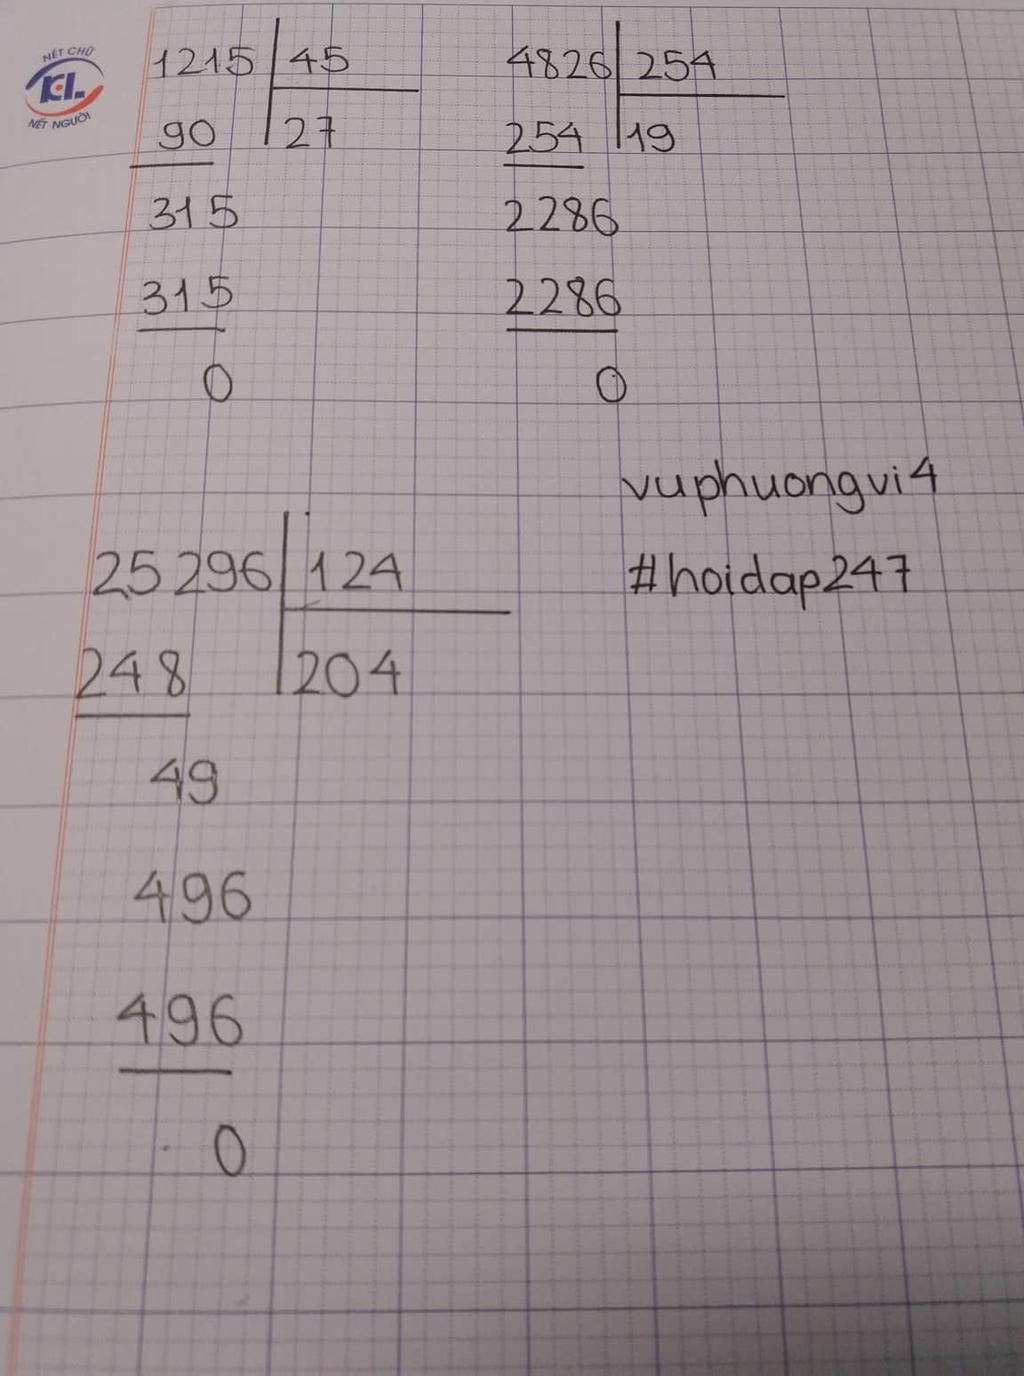 NÉT CHỮ
KL
NẾT NGƯỜI
1215 45
90 27
315
315
0
4826 254
254 19
2286
2286
0
vuphuongvi4
#hoidap247
25 296 124
248 204
49
496
496
0